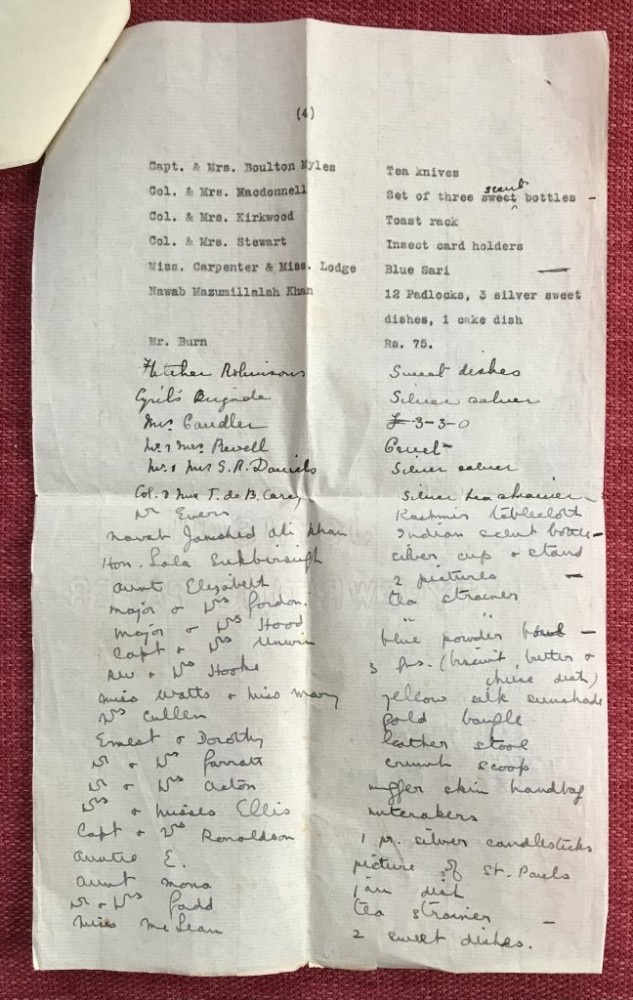 (4)
Capt. & Mrs. Boulton Myles Tea knives
Col. & Mrs. Macdonnell Set of three sweet scent bottles -
Col. & Mrs. Kirkwood Toast rack
Col. & Mrs. Stewart Insect card holders
Miss. Carpenter & Miss. Lodge Blue Sari —
Nawab Mazumillalah Khan 12 Padlocks, 3 silver sweet
dishes, 1 cake dish
Mr. Burn Rs. 75.
Fletcher Robinsons Sweet dishes
Cyril's Brigade Silver salver
Mrs. Candler £3-3-0
Mr. & Mrs Revell Cruet-
Mr. & Mrs S.R. Daniels Silver salver
Col. & Mrs T. de B. Carey Silver tea strainer
Mr Evers Kashmir tablecloth
Nawab Jamshed Ali Khan Indian scent bottle -
Hon. Lala Sukhbirsingh silver cup & stand
Aunt Elizabeth 2 pictures -
Major & Mrs Gordon tea strainer
Major & Mrs Hood " "
Capt & Mrs Unwin blue powder bowl -
Rev & Mrs Hooke 3 prs. (biscuit, butter &
cheese dish)
Miss Watts & Miss Mary yellow silk sunshade
Mrs Cullen gold bangle
Ernest & Dorothy leather stool
Mr & Mrs Garratt crumb scoop
Mr & Mrs Acton skin handbag
Mrs & Misses Ellis nutcrakers
Capt & Mrs Ronaldson 1 pr. silver candlesticks
Auntie E. picture of St. Pauls
Aunt Mona jam dish
Mr & Mrs Gadd tea strainer -
Miss McLean 2 sweet dishes.